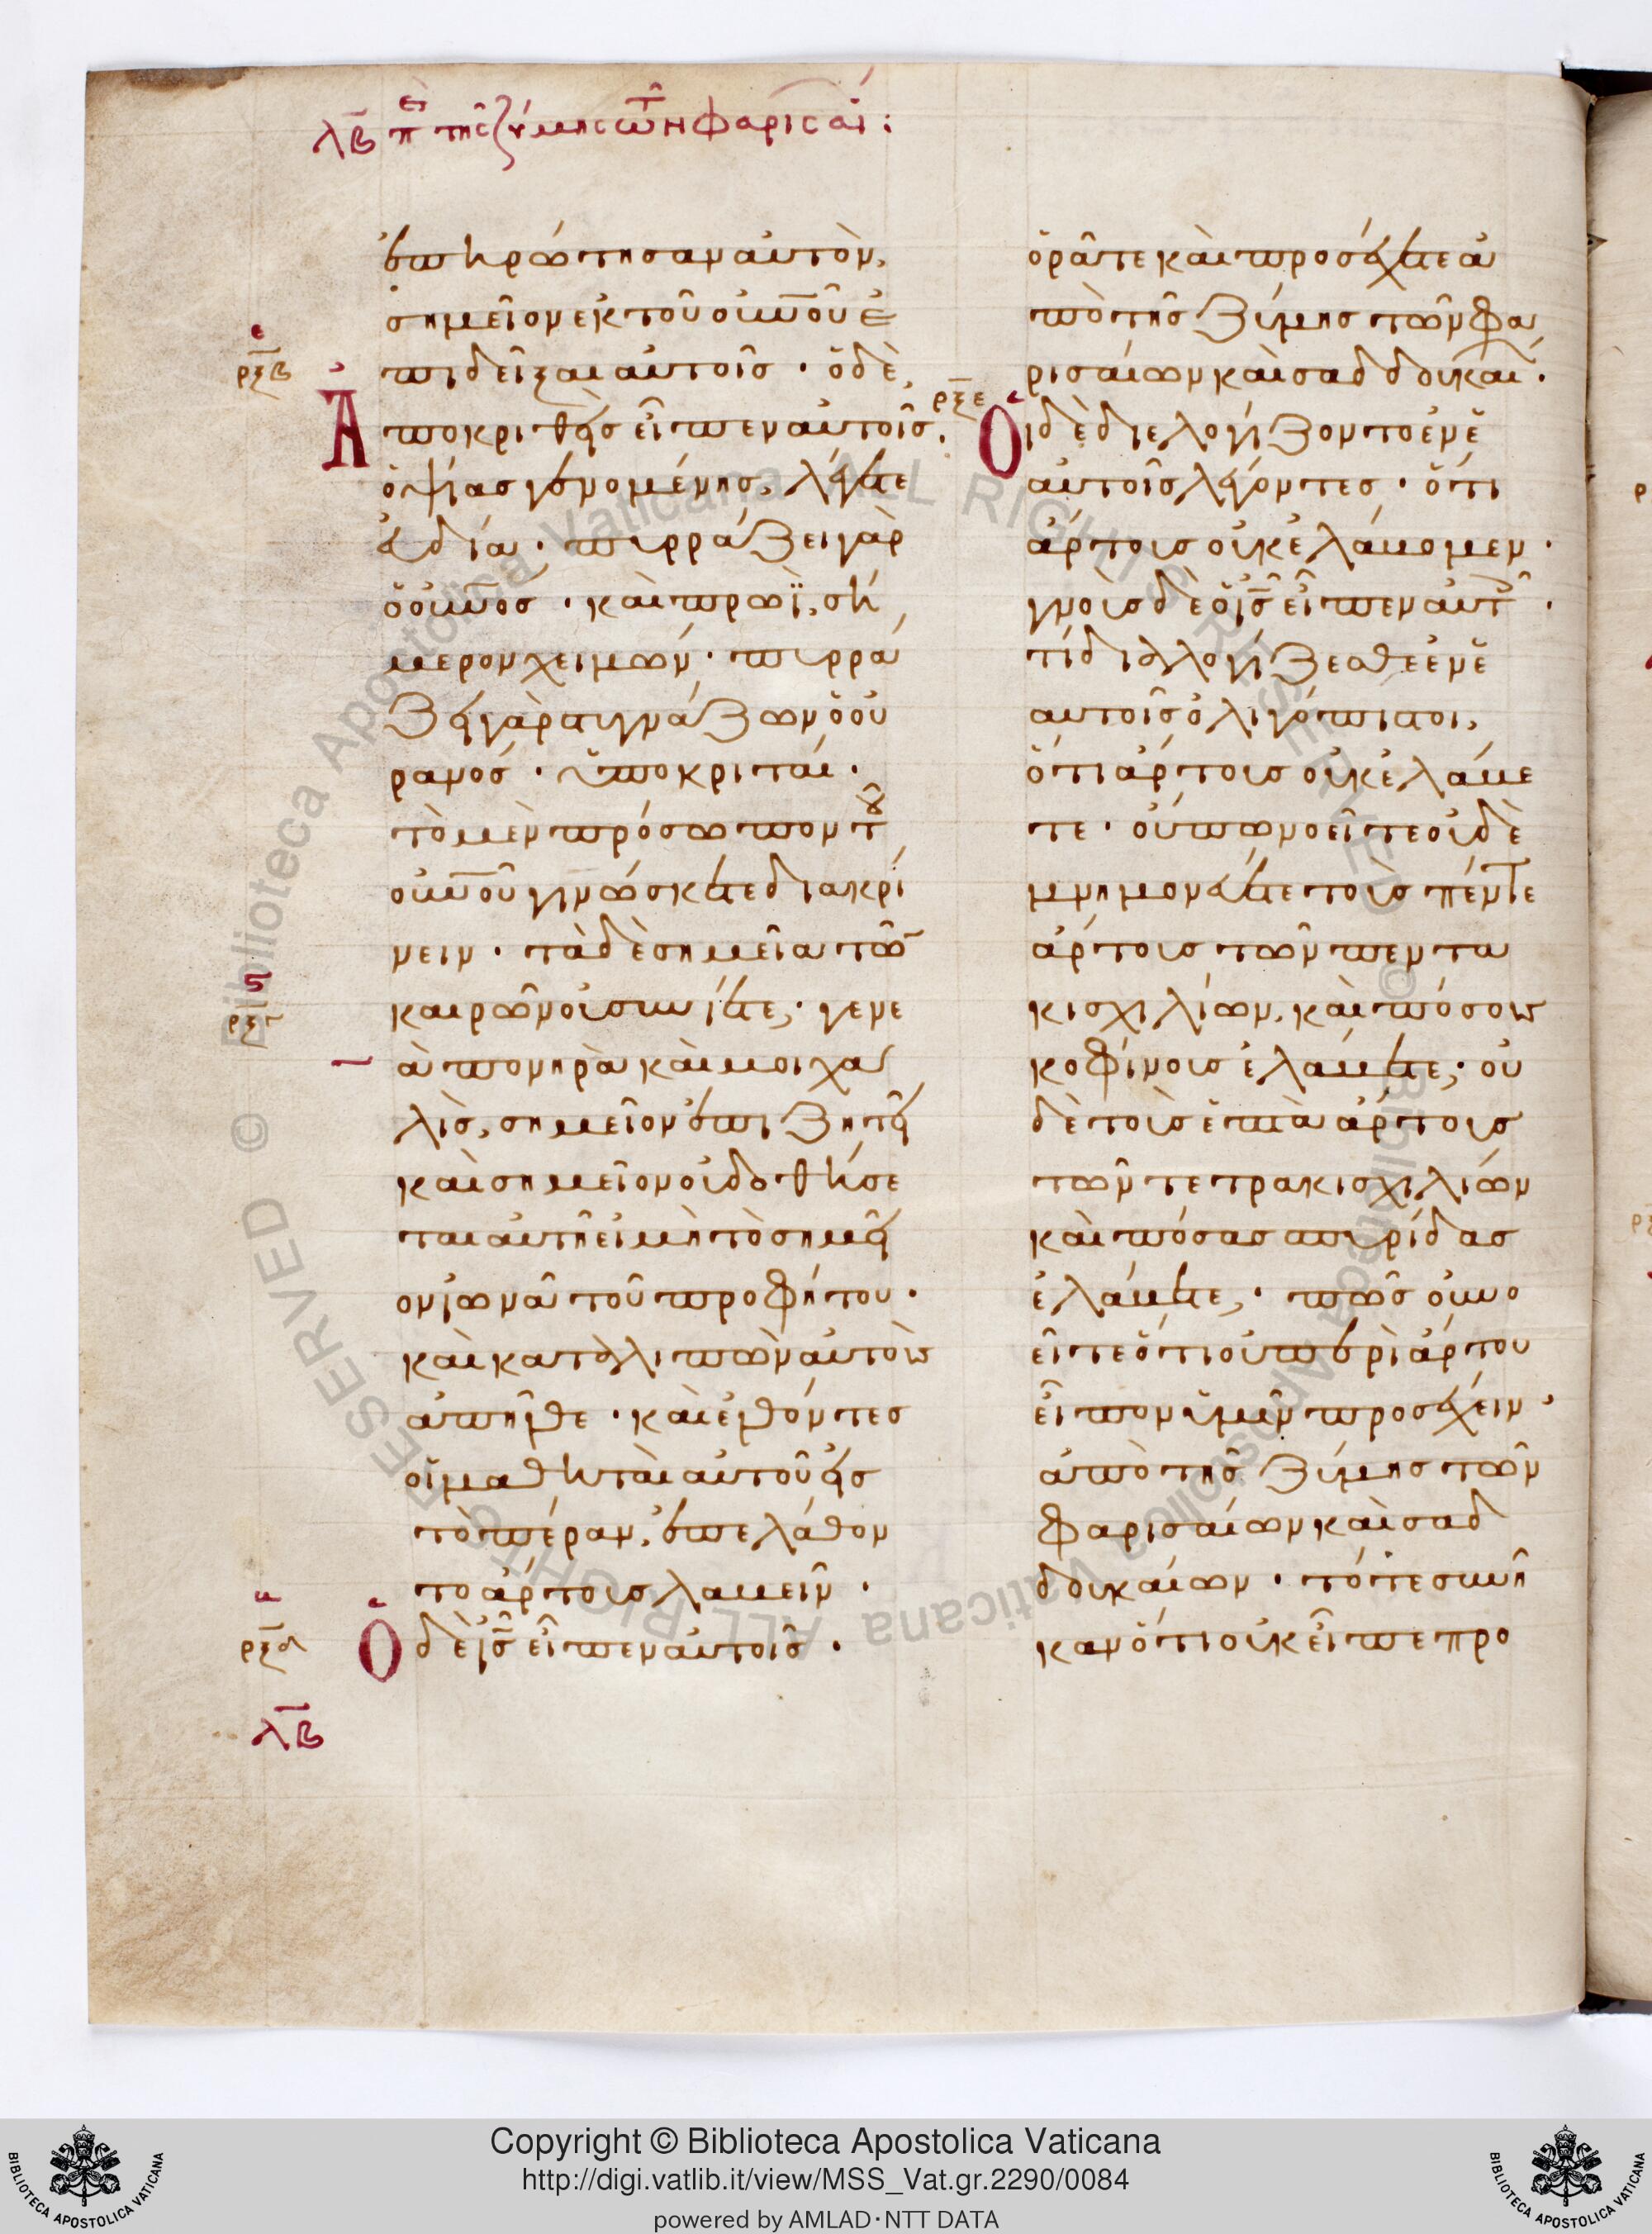 λβ πε τῆς ζύμης τῶν φαρισαί:
ἐπηρώτησαν αὐτὸν,
σημεῖον ἐκ τοῦ οὐνοῦ ἐ
ε
ρξβ
πιδεῖξαι αὐτοῖς · ὁ δὲ
Ἀποκριθεὶς εἶπεν αὐτοῖς.
ὀψίας γενομένης, λέγετε
εὐδία · πυρράζει γὰρ
ὁ οὐνὸς · καὶ πρωῒ, σή
μερον χειμών · πυρρά
ζει γὰρ στυγνάζων ὁ οὐ
ρανός · ὑποκριταί ·
τὸ μὲν πρόσωπον τοῦ
οὐνοῦ γινώσκετε διακρί
νειν · τὰ δὲ σημεῖα τῶ̅
ϛ
ρξγ
καιρῶν οὐ συνίετε, · γενε
ὰ πονηρὰ καὶ μοιχα
λὶς, σημεῖον ἐπιζητεῖ
καὶ σημεῖον οὐ δοθήσε
ται αὐτῆ εἰ μὴ τὸ σημεῖ
ον ἰωνᾶ τοῦ προφήτου ·
καὶ καταλιπὼν αὐτοὺς
ἀπῆλθε · καὶ ἐλθόντες
οἱ μαθηταὶ αὐτοῦ εἰς
τὸ πέραν, ἐπελάθον
το ἄρτους λαβεῖν ·
ρξδ
Ὁ δὲ ἰς̅ εἶπεν αὐτοῖς ·
λβ
ὁρᾶτε καὶ προσέχετε ἀ
πὸ τῆς ζύμης τῶν φα
ρισαίων καὶ σαδδουκαί ·
ρξε
Οἱ δὲ διελογίζοντο ἐν ἑ
αυτοῖς λέγοντες · ὅτι
ἄρτους οὐκ ἐλάβομεν ·
γνοὺς δὲ ὁ ἰς̅ εἶπεν αὐτ ·
τί διαλογίζεσθε ἐν ἑ
αυτοῖς ὀλιγόπιστοι,
ὅτι ἄρτους οὐκ ἐλάβε
τε · οὔπω νοεῖτε οὐδὲ
μνημονεύετε τοὺς πέντε
ἄρτους τῶν πεντα
κισχιλίων, καὶ πόσους
κοφίνους ἐλάβετε, · οὐ
δὲ τοὺς ἑπτὰ ἄρτους
τῶν τετρακισχιλίων
καὶ πόσας σπυρίδας
ἐλάβετε, · πῶς οὐ νο
εῖτε ὅτι οὐ περὶ ἄρτου
εἶπον ὑμῖν προσέχειν,
ἀπὸ τῆς ζύμης τῶν
φαρισαίων καὶ σαδ
δουκαίων · τότε συνῆ
καν ὅτι οὐκ εἶπε προ
Copyright © Biblioteca Apostolica Vaticana
http://digi.vatlib.it/view/MSS_Vat.gr.2290/0084
powered by AMLAD·NTT DATA
BIBLIOTECA APOSTOLICA VATICANA
BIBLIOTECA APOSTOLICA VATICANA